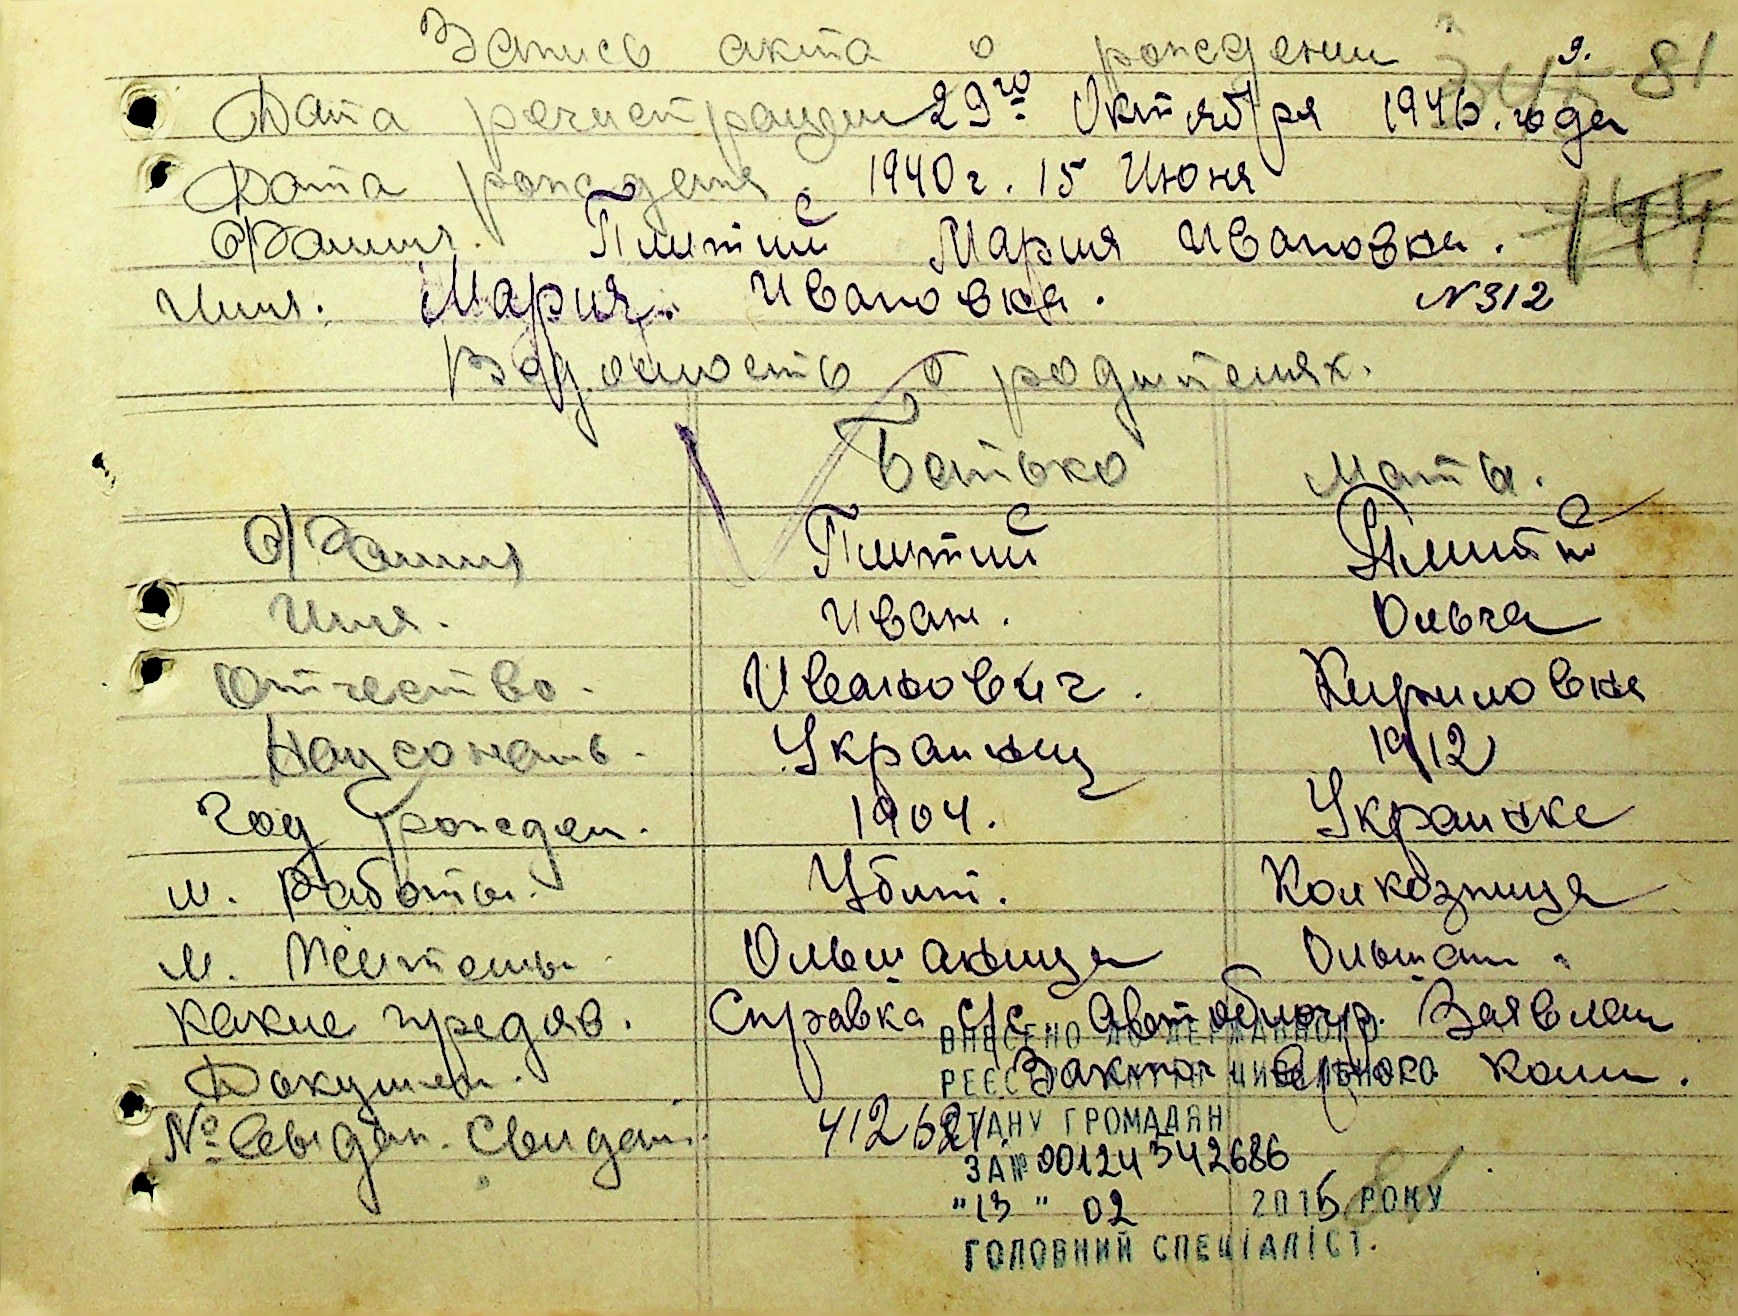 Запись акта о рождении
81
Дата регистрации 29го Октября 1946. года
Дата рождения. 1940 г. 15 Июня
144
Фамилия. Плитий Мария Ивановна.
Имя. Мария. Ивановна. N 312
о родителях.
Батько Маты.
Фамилия Плитий Плитий
Имя. Иван. Ольга
Отчество. Иванович. Кириловна
Нацсональ. Украинец 1912
Год рожден. 1904. Украинка
м. Работы. Убит. Колхозница
м. Жительс Ольшаница Ольшан "
какие предяв. Справка с/с. Автобиогр. Заявлен
Докумен. Заключ врачеб. Комис.
№ Свидет. 412621
ВНЕСЕНО ДО ДЕРЖАВНОГО
РЕЄСТРУ АКТІВ ЦИВІЛЬНОГО
СТАНУ ГРОМАДЯН
ЗА № 00124542686
"13" 02 2015 РОКУ
81
ГОЛОВНИЙ СПЕЦІАЛІСТ.